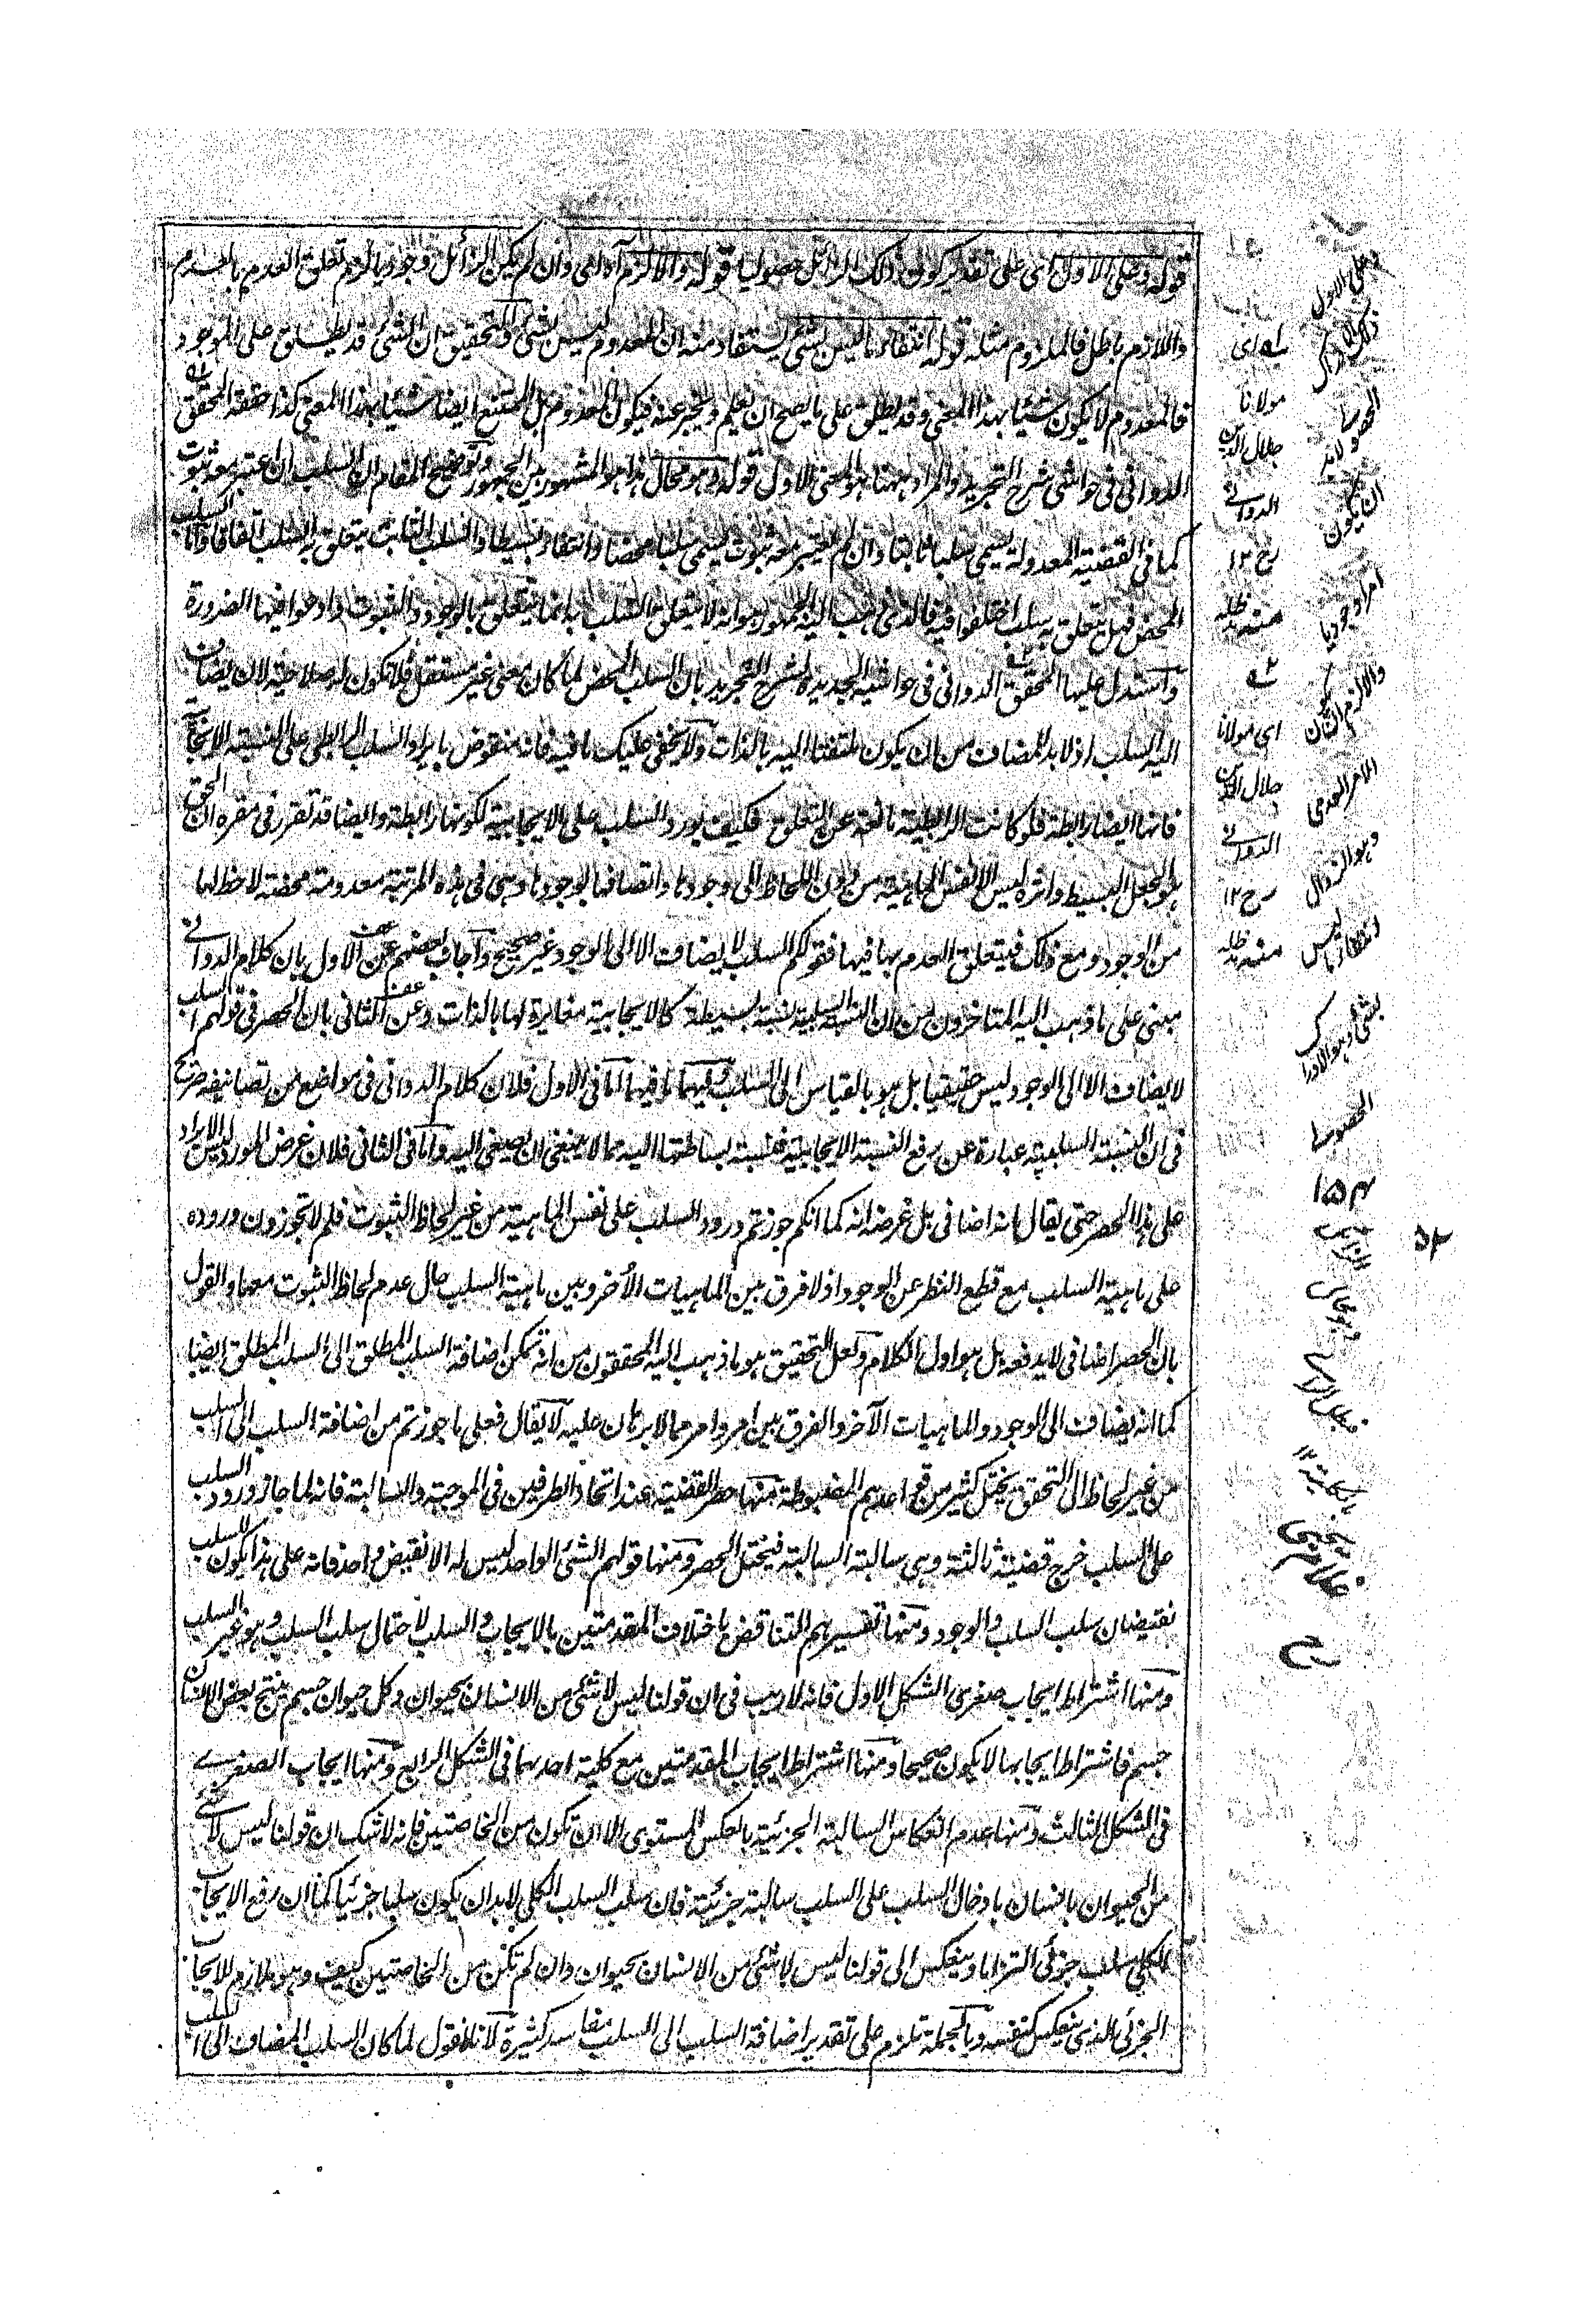 قوله وعلى الاول اى على تقدير كون ذلك الزائل حصوليا قوله والا لزم آه اى وان لم يكن الزائل وجوديا لزم تعلق العدم بالعدم
واللازم باطل فالملزوم مثله قوله انتفاء ما ليس بشئ يستفاد منه ان المعدوم ليس بشئ والتحقيق ان الشئ قد يطلق على الموجود
فالمعدوم لا يكون شيئا بهذا المعنى وقد يطلق على ما يصح ان يعلم ويخبر عنه فيكون المعدوم بل الممتنع ايضا شيئا بهذا المعنى كذا حققه المحقق
الدوانى فى حواشى شرح التجريد والمراد ههنا هو المعنى الاول قوله وهو محال هذا هو المشهور بين الجمهور وتوضيح المقام ان السلب ان اعتبر معه ثبوت
كما فى القضية المعدولة يسمى سلبا ثابتا وان لم يعتبر معه ثبوت يسمى سلبا محضا وانتفاء بسيطا والسلب الثابت يتعلق به السلب اتفاقا واما السلب
المحض فهل يتعلق به سلب اختلفوا فيه فالذى ذهب اليه الجمهور هو انه لا يتعلق السلب به انما يتعلق بالوجود والثبوت وادعوا فيها الضرورة
واستدل عليها المحقق الدوانى فى حواشيه الجديدة لشرح التجريد بان السلب المحض لما كان معنى غير مستقل فلا تكون له صلاحية لان يضاف
اليه السلب اذ لا بد للمضاف من ان يكون ملتفتا اليه بالذات ولا يخفى عليك ما فيه فانه منقوض بايراد السلب الرابطى على النسبة الايجابية
فانها ايضا رابطة فلو كانت الرابطية مانعة عن التعلق فكيف يورد السلب على الايجابية لكونها رابطة وايضا قد تقرر فى مقره ان الحق
هو الجعل البسيط واثره ليس الا نفس الماهية من دون اللحاظ الى وجودها واتصافها بوجودها وهى فى هذه المرتبة معدومة محضة لا حظ لها
من الوجود ومع ذلك فيتعلق العدم بها فيها فقولكم السلب لا يضاف الا الى الوجود غير صحيح واجاب بعضهم عن الاول بان كلام الدوانى
مبنى على ما ذهب اليه المتاخرون من ان النسبة السلبية نسبة بسيطة كالايجابية مغايرة لها بالذات وعن الثانى بان الحصر فى قولهم السلب
لا يضاف الا الى الوجود ليس حقيقيا بل هو بالقياس الى السلب وفيهما ما فيهما اما فى الاول فلان كلام الدوانى فى مواضع من تصانيفه صريح
فى ان النسبة السلبية عبارة عن رفع النسبة الايجابية فنسبة بساطتها اليه مما لا ينبغى ان يصغى اليه واما فى الثانى فلان غرض المورد ليس الايراد
على هذا الحصر حتى يقال انه اضافى بل غرضه انه كما انكم جوزتم ورود السلب على نفس الماهية من غير لحاظ الثبوت فلم لا تجوزون وروده
على ماهية السلب مع قطع النظر عن الوجود اذ لا فرق بين الماهيات الأخر وبين ماهية السلب حال عدم لحاظ الثبوت معها والقول
بان الحصر اضافى لا يدفعه بل هو اول الكلام ولعل التحقيق هو ما ذهب اليه المحققون من انه تمكن اضافة السلب المطلق الى السلب المطلق ايضا
كما انه يضاف الى الوجود والماهيات الآخر والفرق بين امر وامر مما لا برهان عليه لا يقال فعلى ما جوزتم من اضافة السلب الى السلب
من غير لحاظ ال التحقق يختل كثير من قواعدهم المضبوطة منها حصر القضية عند اتحاد الطرفين فى الموجبة والسالبة فانه لما جاز ورود السلب
على السلب خرج قضية ثالثة وهى سالبة السالبة فيختل الحصر ومنها قولهم الشئ الواحد ليس له الا نقيض واحد فانه على هذا يكون للسلب
نقيضان سلب السلب والوجود ومنها تفسيرهم التناقض باختلاف المقدمتين بالايجاب والسلب لاحتمال سلب السلب وهو غير السلب
ومنها اشتراط ايجاب صغرى الشكل الاول فانه لا ريب فى ان قولنا ليس لا شئ من الانسان بحيوان وكل حيوان جسم ينتج بعض الانسان
جسم فاشتراط ايجابها لا يكون صحيحا ومنها اشتراط ايجاب المقدمتين مع كلية احدهما فى الشكل الرابع ومنها ايجاب الصغرى
فى الشكل الثالث ومنها عدم انعكاس السالبة الجزئية بالعكس المستوى الا ان تكون من الخاصتين فانه لا شك ان قولنا ليس لا شئ
من الحيوان بانسان بادخال السلب على السلب سالبة جزئية فان سلب السلب الكلى لا بد ان يكون سلبا جزئيا كما ان رفع الايجاب
الكلى سلب جزئى التزاما وينعكس الى قولنا ليس لا شئ من الانسان بحيوان وان لم تكن من الخاصتين كيف وهو ملازم للايجاب
الجزئى الذى ينعكس كنفسه وبالجملة تلزم على تقدير اضافة السلب الى السلب مفاسد كثيرة لانا نقول لما كان السلب المضاف الى السلب
اى
مولانا
جلال الدين
الدوانى
رح ١٢
منه مد ظله
٢
اى مولانا
جلال الدين
الدوانى
رح ١٢
منه مد ظله
وعلى الاول
الحصوليا
لا بد
ان يكون
امرا وجوديا
والا لزم ان
الامر العدمى
وهو الزوال
انتفاء ما ليس
بشئ وهو الادراك
الحصولى
١٥٣
وهو محال
٥٢